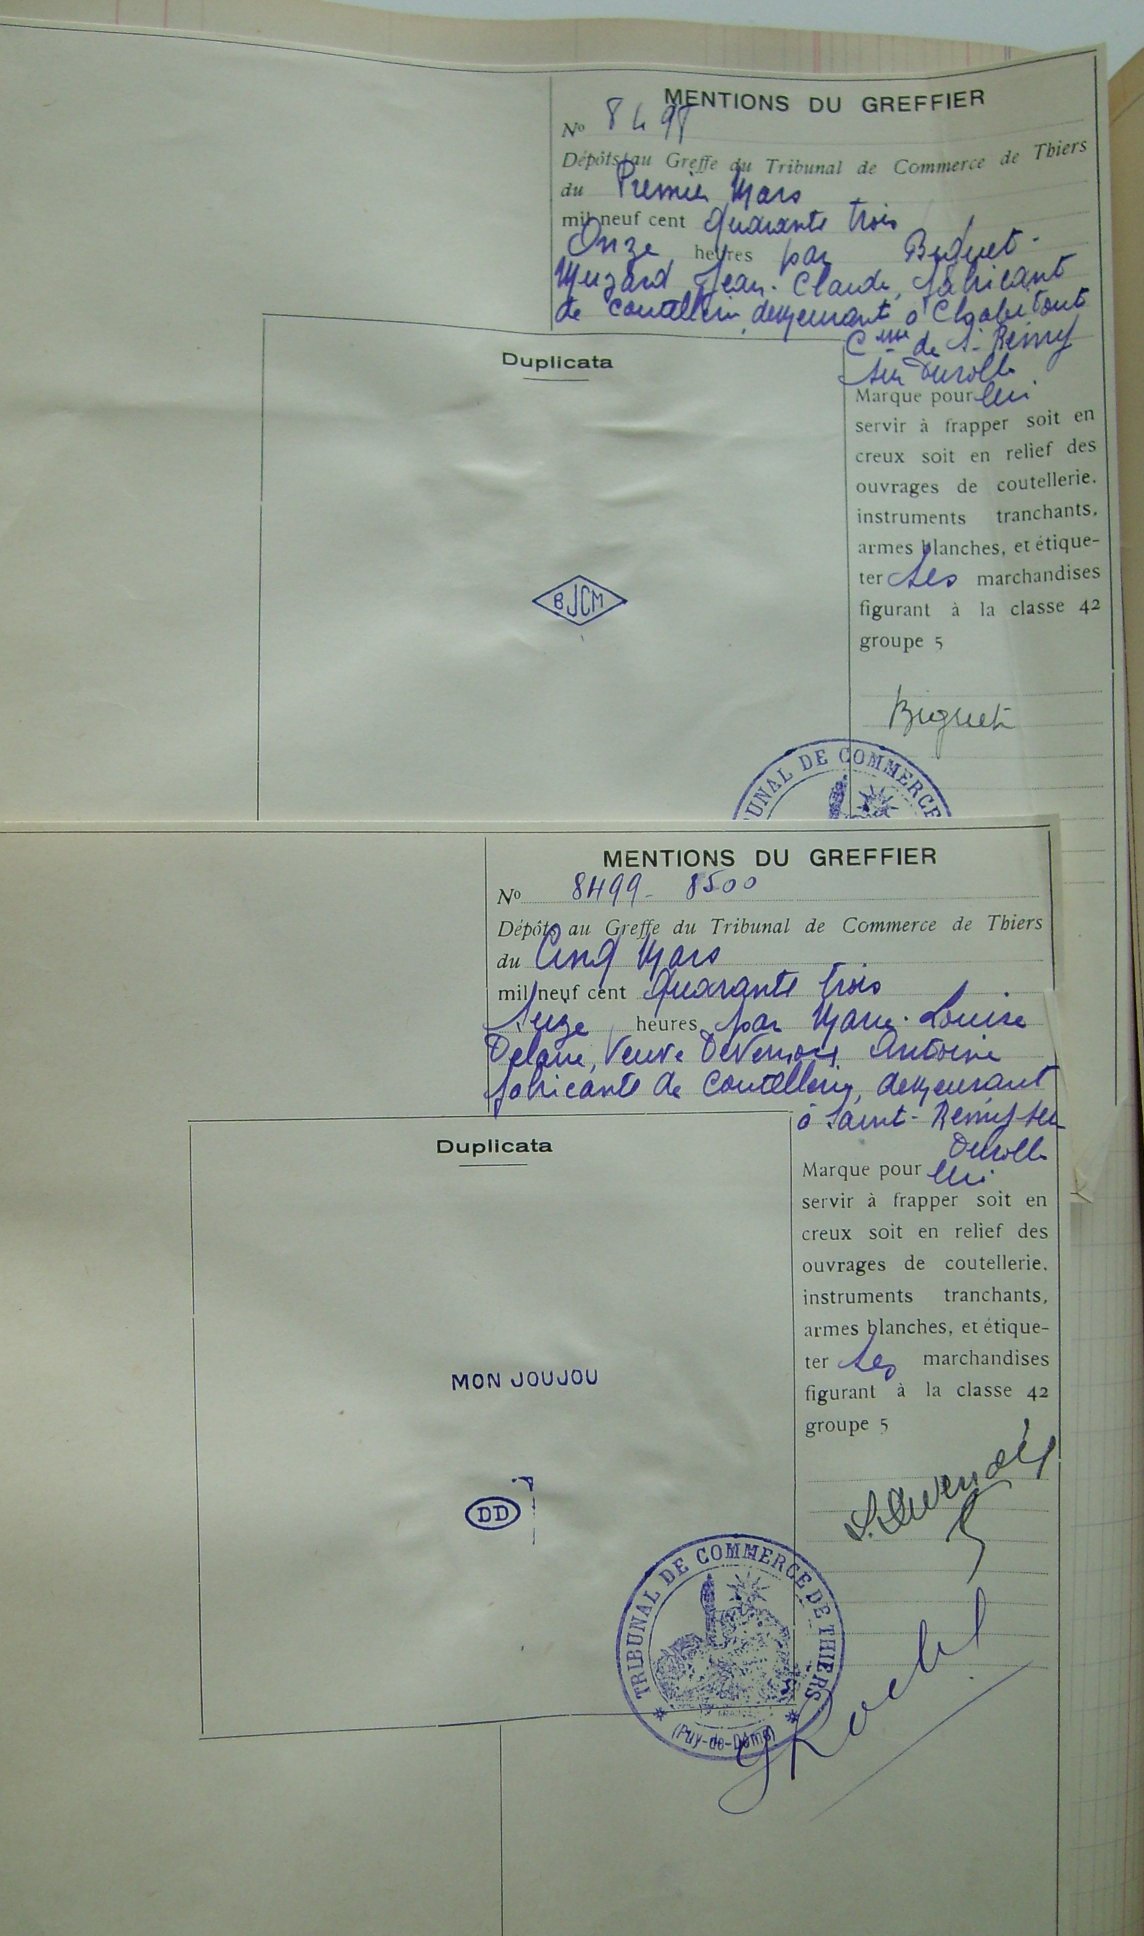 MENTIONS DU GREFFIER
No 8498
Dépôts au Greffe du Tribunal de Commerce de Thiers
du Premier Mars
mil neuf cent quarante trois
Onze heures par Biguet-
Muzard Jean-Claude, fabricant
de coutellerie, demeurant à Chabetout
Cmne de St-Rémy
sur Durolle
Duplicata
Marque pour lui
servir à frapper soit en
creux soit en relief des
ouvrages de coutellerie.
instruments tranchants,
armes blanches, et étique-
ter ses marchandises
figurant à la classe 42
groupe 5
BJCM
Biguet
TRIBUNAL DE COMMERCE
MENTIONS DU GREFFIER
No 8499-8500
Dépôts au Greffe du Tribunal de Commerce de Thiers
du Cinq Mars
mil neuf cent quarante trois
Seize heures par Marie-Louise
Veuve Devernois Antoine
fabricante de coutellerie, demeurant
à Saint-Rémy sur
Durolle
Duplicata
Marque pour lui
servir à frapper soit en
creux soit en relief des
ouvrages de coutellerie.
instruments tranchants,
armes blanches, et étique-
ter ses marchandises
figurant à la classe 42
groupe 5
MON JOUJOU
DD
TRIBUNAL DE COMMERCE DE THIERS
(Puy-de-Dôme)